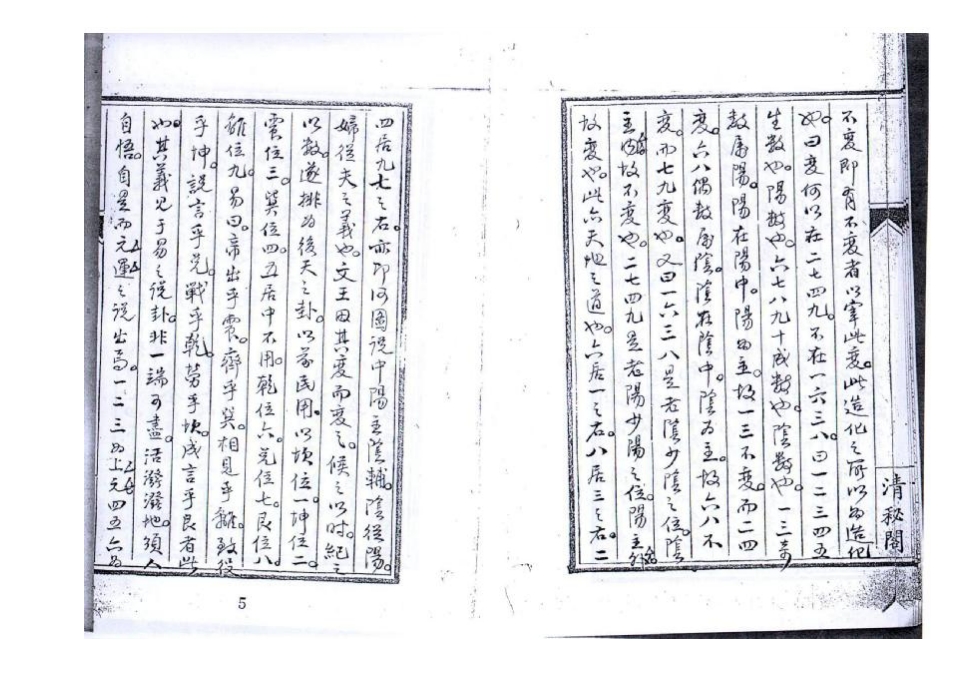 不變即有不變者以宰此變。此造化之所以為造化
也。曰變何以在二七四九。不在一六三八。曰一二三四五
生數也。陽數也。六七八九十成數也。陰數也。一三奇
數屬陽。陽在陽中。陽為主。故一三不變。而二四
變。六八偶數屬陰。陰在陰中。陰為主。故六八不
變。而七九變也。又曰一六三八是老陰少陰之位。陰
主故不變也。二七四九是老陽少陽之位。陽主
故變也。此亦天地之道也。六居一之右。八居三之右。二
清秘閣
四居九七之右。亦即河圖說中陽主陰輔。陰從陽。
婦從夫之義也。文王因其變而變之。候之以時。紀之
以數。遂排為後天之卦。以前民用。以坎位一。坤位二。
震位三。巽位四。五居中不用。乾位六。兌位七。艮位八。
離位九。易曰。帝出乎震。齊乎巽。相見乎離。致役
乎坤。說言乎兌。戰乎乾。勞乎坎。成言乎艮者此
也。其義見于易之說卦。非一端可盡。活潑潑地。須人
自悟。自是而元運之說出焉。一二三為上元四五六為
5